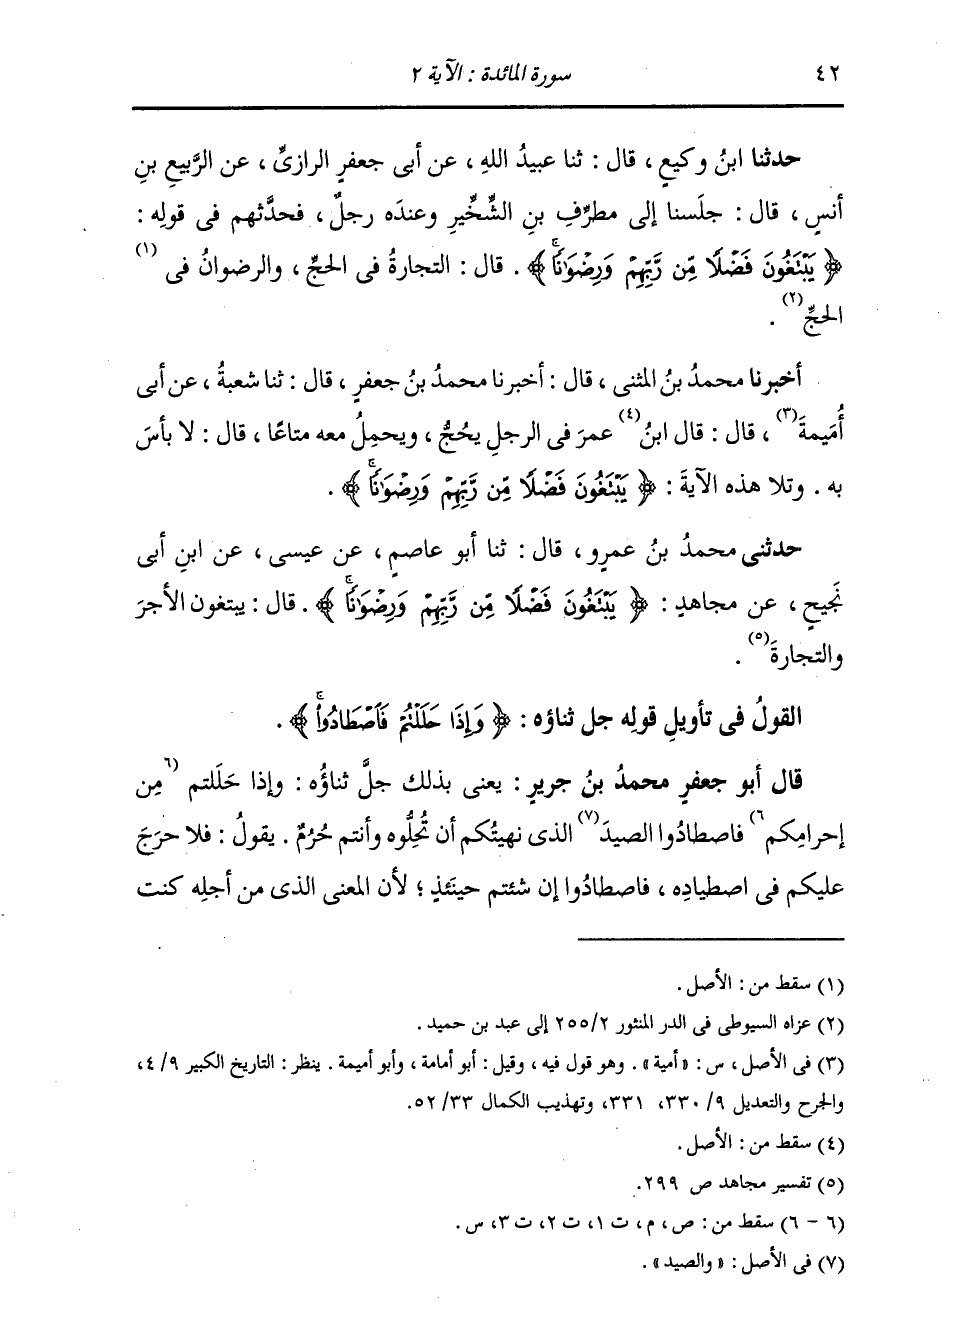 ٤٢ سورة المائدة : الآية ٢
حدثنا ابنُ وكيعٍ ، قال : ثنا عبيدُ اللهِ ، عن أبى جعفرٍ الرازىِّ ، عن الرَّبيعِ بنِ
أنسٍ ، قال : جلَسنا إلى مطرِّفِ بنِ الشِّخِّيرِ وعندَه رجلٌ ، فحدَّثهم فى قولِه :
﴿ يَبْتَغُونَ فَضْلًا مِّن رَّبِّهِمْ وَرِضْوَٰنًاۚ ﴾ . قال : التجارةُ فى الحجِّ ، والرضوانُ فى (١)
الحجِّ (٢) .
أخبرنا محمدُ بنُ المثنى ، قال : أخبرنا محمدُ بنُ جعفرٍ ، قال : ثنا شعبةُ ، عن أبى
أُمَيمةَ (٣) ، قال : قال ابنُ (٤) عمرَ فى الرجلِ يحُجُّ ، ويحمِلُ معه متاعًا ، قال : لا بأسَ
به . وتلا هذه الآيةَ : ﴿ يَبْتَغُونَ فَضْلًا مِّن رَّبِّهِمْ وَرِضْوَٰنًاۚ ﴾ .
حدثنى محمدُ بنُ عمرٍو ، قال : ثنا أبو عاصمٍ ، عن عيسى ، عن ابنِ أبى
نَجيحٍ ، عن مجاهدٍ : ﴿ يَبْتَغُونَ فَضْلًا مِّن رَّبِّهِمْ وَرِضْوَٰنًاۚ ﴾ . قال : يبتغون الأجرَ
والتجارةَ (٥) .
القولُ فى تأويلِ قولِه جل ثناؤه : ﴿ وَإِذَا حَلَلْتُمْ فَٱصْطَادُوا۟ۚ ﴾ .
قال أبو جعفرٍ محمدُ بنُ جريرٍ : يعنى بذلك جلَّ ثناؤُه : وإذا حَلَلتم (٦) مِن
إحرامِكم ٦) فاصطادُوا الصيدَ (٧) الذى نهيتُكم أن تُحِلُّوه وأنتم حُرُمٌ . يقولُ : فلا حرَجَ
عليكم فى اصطيادِه ، فاصطادُوا إن شئتم حينَئذٍ ؛ لأن المعنى الذى من أجلِه كنت
(١) سقط من : الأصل .
(٢) عزاه السيوطى فى الدر المنثور ٢٥٥/٢ إلى عبد بن حميد .
(٣) فى الأصل ، س : « أمية » . وهو قول فيه ، وقيل : أبو أمامة ، وأبو أميمة . ينظر : التاريخ الكبير ٩/ ٤،
والجرح والتعديل ٩/ ٣٣٠، ٣٣١، وتهذيب الكمال ٣٣/ ٥٢.
(٤) سقط من : الأصل .
(٥) تفسير مجاهد ص ٢٩٩.
(٦ - ٦) سقط من : ص ، م ، ت ١، ت ٢، ت ٣، س .
(٧) فى الأصل : « والصيد » .